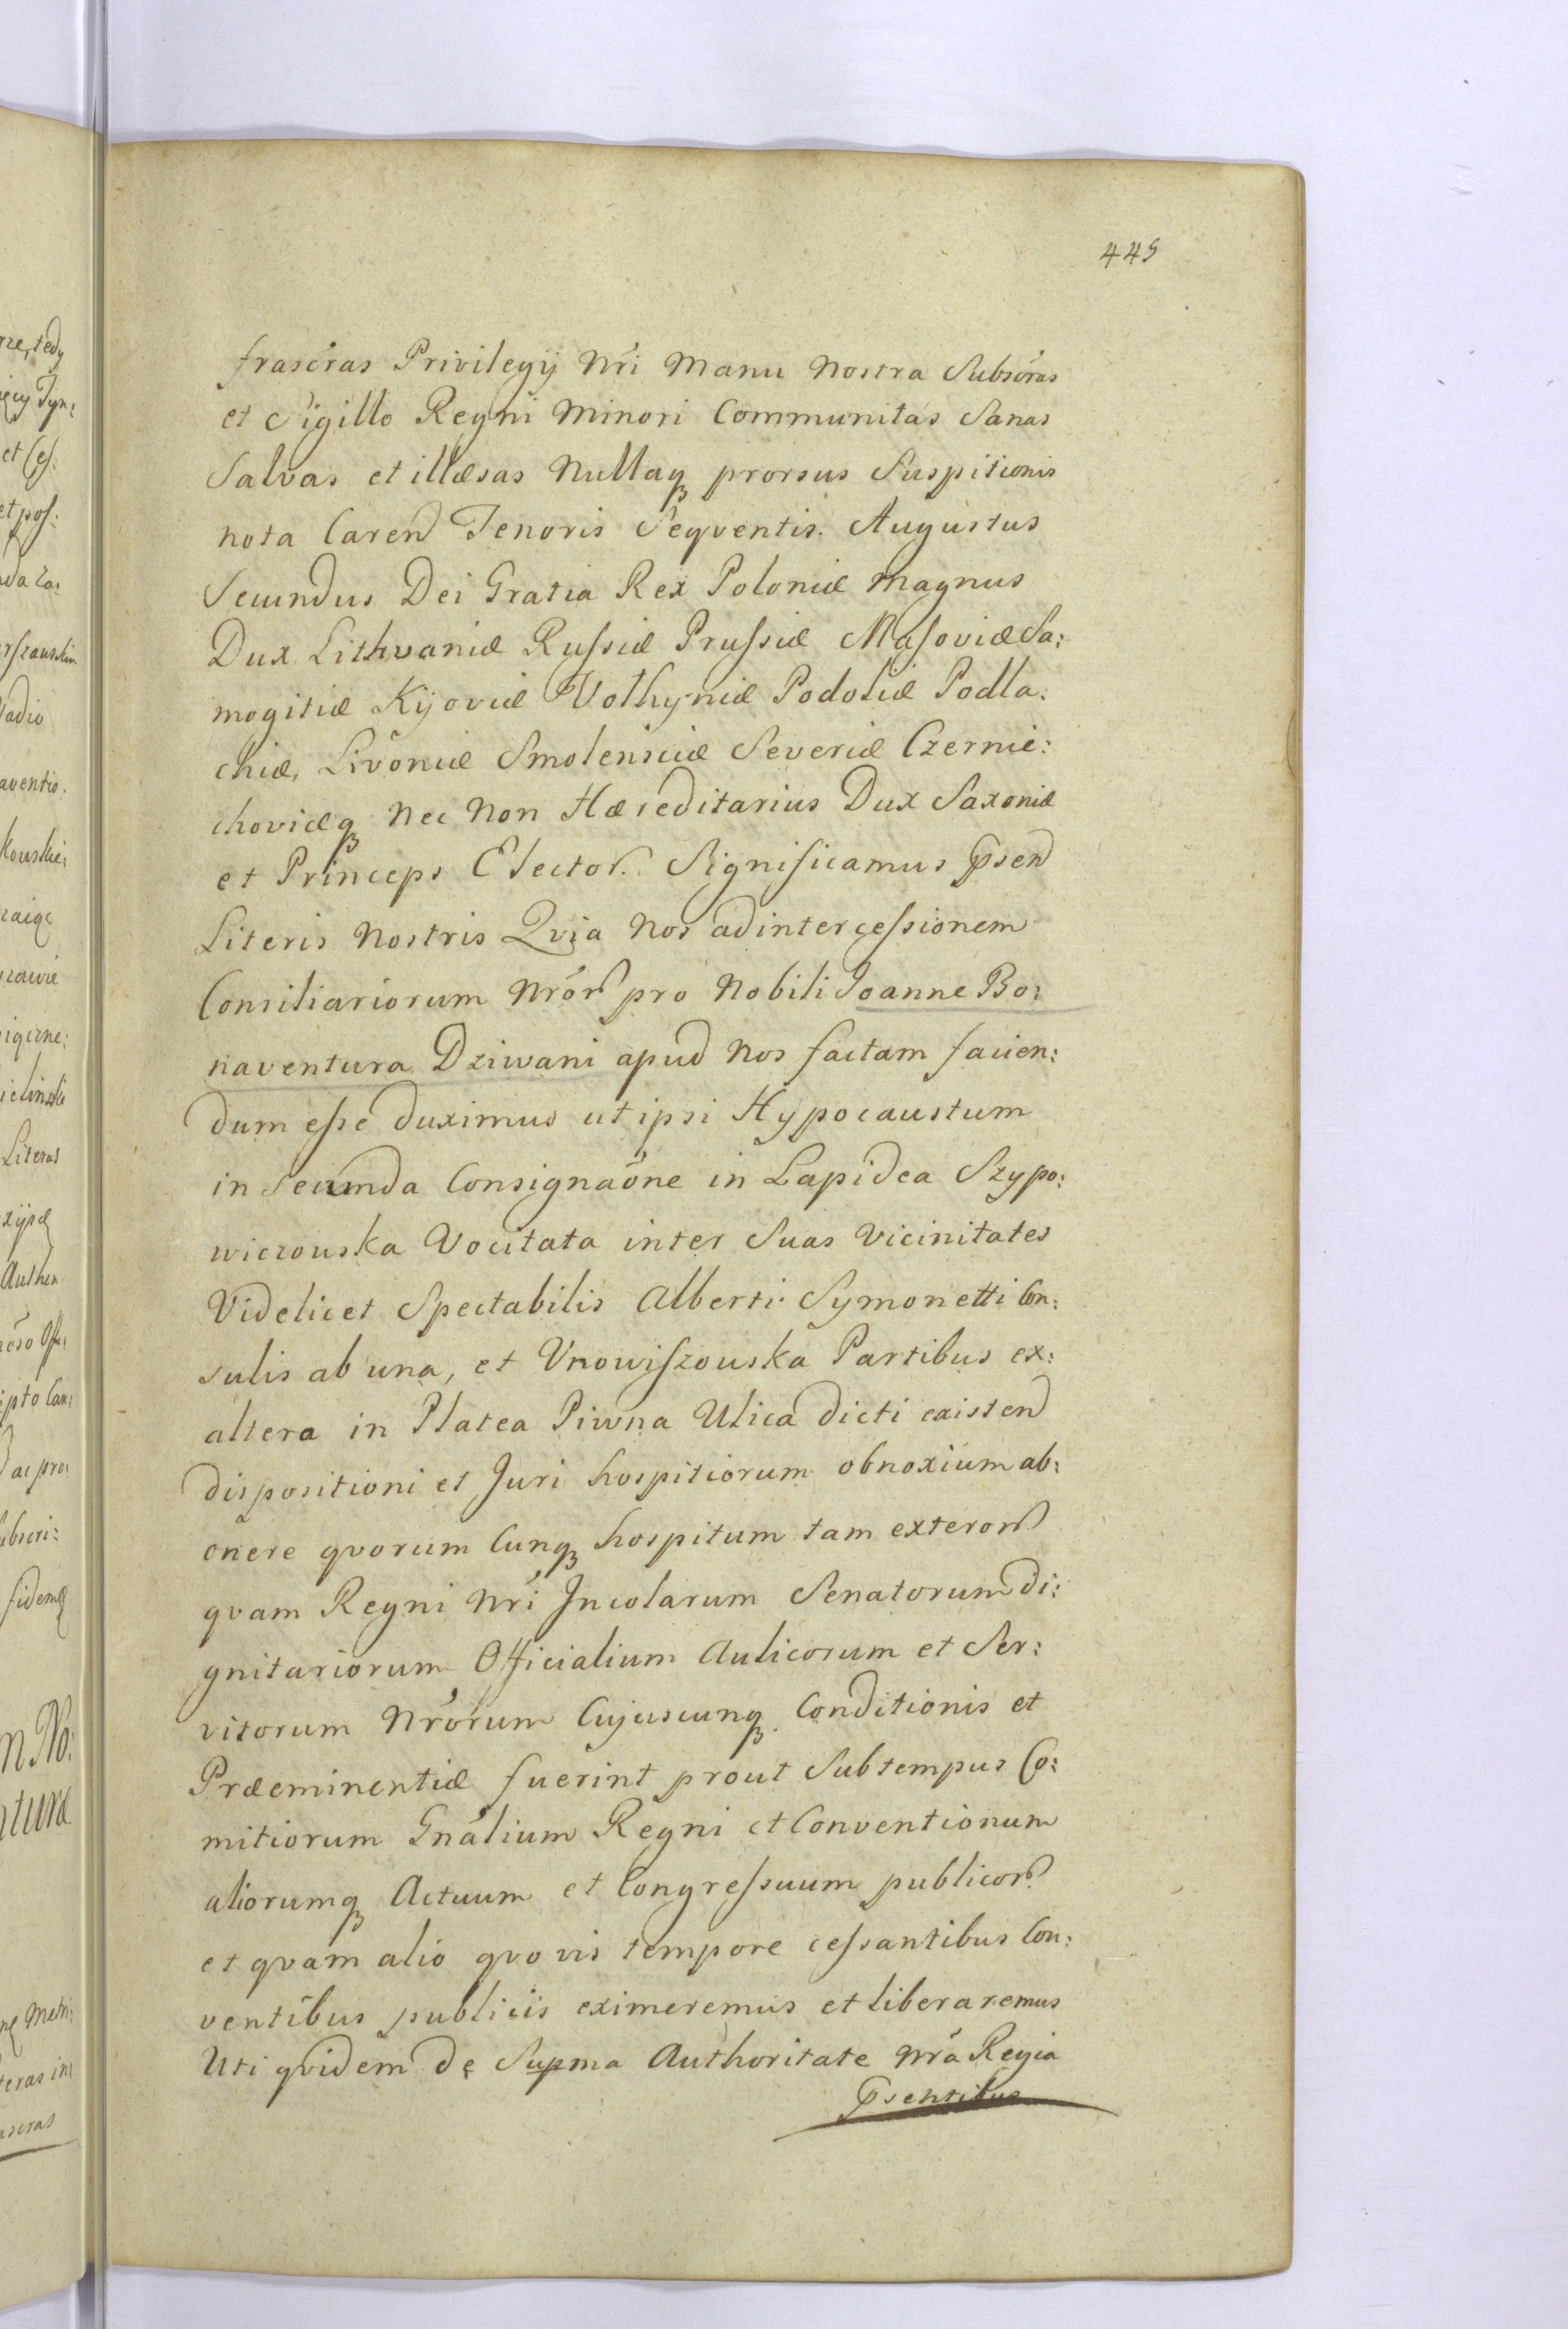 445
frascras Privilegij Nri Manu Nostra Subscras
et Sigillo Regni Minori Communitas Sanas
Salvas et illæsas Nullaq prorsus Suspitionis
nota Caren Tenoris Seqventis. Augustus
Secundus Dei Gratia Rex Poloniæ Magnus
Dux Lithvaniæ Russiæ Prussiæ Masoviæ Sa:
mogitiæ Kijoviæ Volhyniæ Podoliæ Podla:
chiæ, Livoniæ Smolensciæ Severiæ Czernie:
choviæq Nec Non Hæreditarius Dux Saxoniæ
et Princeps Elector. Significamus Psen
Literis Nostris Qvia Nos ad intercessionem
Consiliariorum Nror pro Nobili Joanne Bo:
naventura Dziwani apud Nos factam facien:
dum esse duximus ut ipsi Hypocaustum
in Secunda Consignaone in Lapidea Szypo:
wiczouska Vocitata inter Suas Vicinitates
Videlicet Spectabilis Alberti Symonetti Con:
sulis ab una, et Vnowiszouska Partibus ex:
altera in Platea Piwna Ulica dicti existen
dispositioni et Juri hospitiorum obnoxium ab:
onere qvorum Cunq hospitum tam exteror
qvam Regni Nri Incolarum Senatorum di:
gnitariorum Officialium Aulicorum et Ser:
vitorum Nrorum Cujuscunq Conditionis et
Præeminentiæ fuerint prout Sub tempus Co:
mitiorum Gnalium Regni et Conventionum
aliorumq Actuum et Congressuum publicor
et qvam alio qvo vis tempore cessantibus Con:
ventibus publicis eximeremus et liberaremus
Uti qvidem de Supma Authoritate Nra Regia
Psentibus